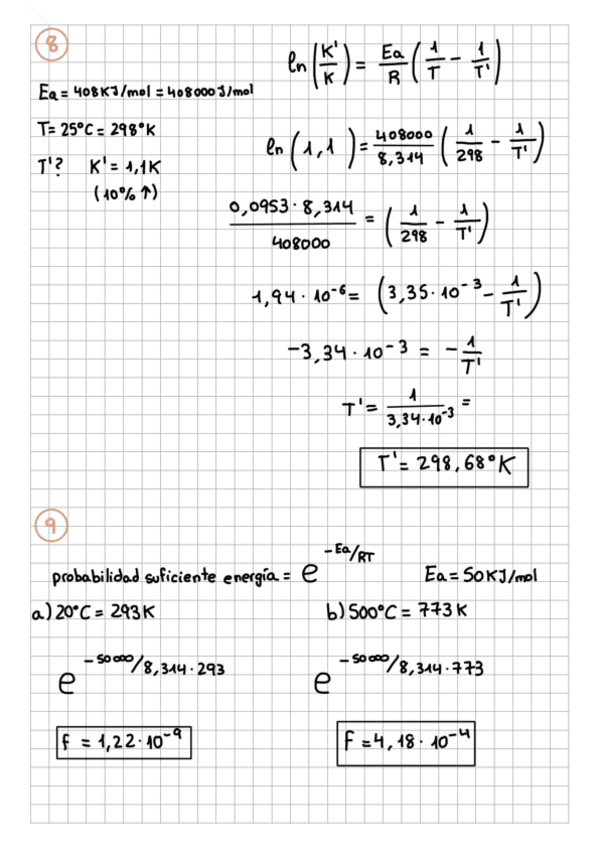 8
Ea = 408KJ/mol = 408000J/mol
T = 25°C = 298°K
T'? K' = 1,1K
(10% ↑)
ln(K'/K) = Ea/R (1/T - 1/T')
ln(1,1) = 408000/8,314 (1/298 - 1/T')
0,0953·8,314/408000 = (1/298 - 1/T')
1,94·10⁻⁶ = (3,35·10⁻³ - 1/T')
-3,34·10⁻³ = -1/T'
T' = 1/3,34·10⁻³ =
T' = 298,68°K
9
probabilidad suficiente energía = e^-Ea/RT Ea = 50KJ/mol
a) 20°C = 293K b) 500°C = 773K
e^-50000/8,314·293 e^-50000/8,314·773
f = 1,22·10⁻⁹ f = 4,18·10⁻⁴